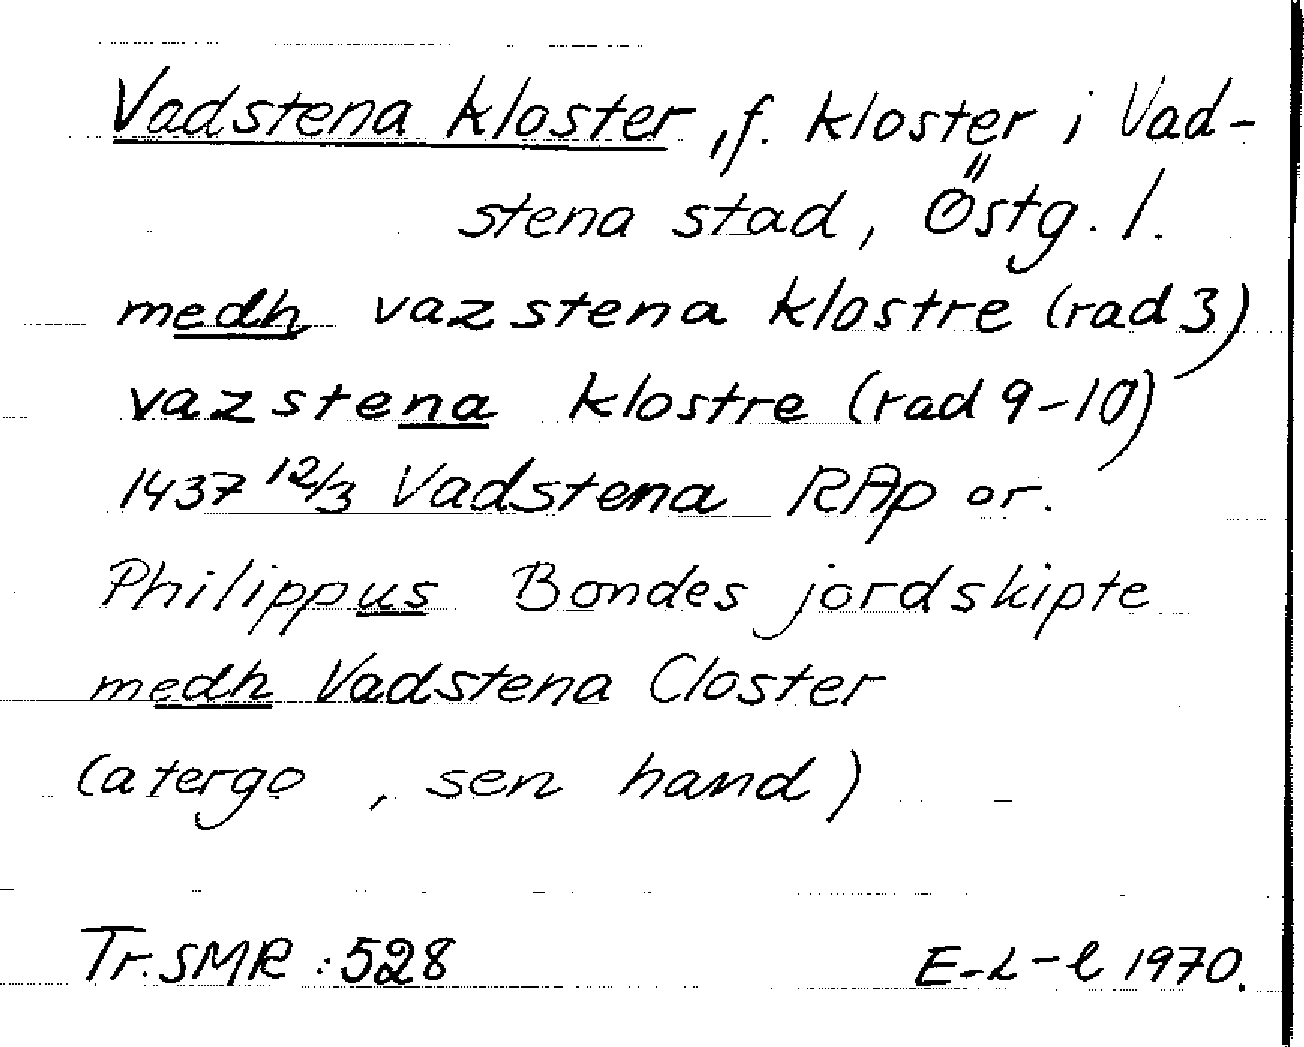 Vadstena kloster, f. kloster i Vad-
stena stad, Östg. l.
medh vazstena klostre (rad 3)
vazstena klostre (rad 9-10)
1437 12/3 Vadstena RAp or.
Philippus Bondes jordskipte
medh Vadstena Closter
(a tergo, sen hand)
Tr. SMR: 528 E-L-l 1970.